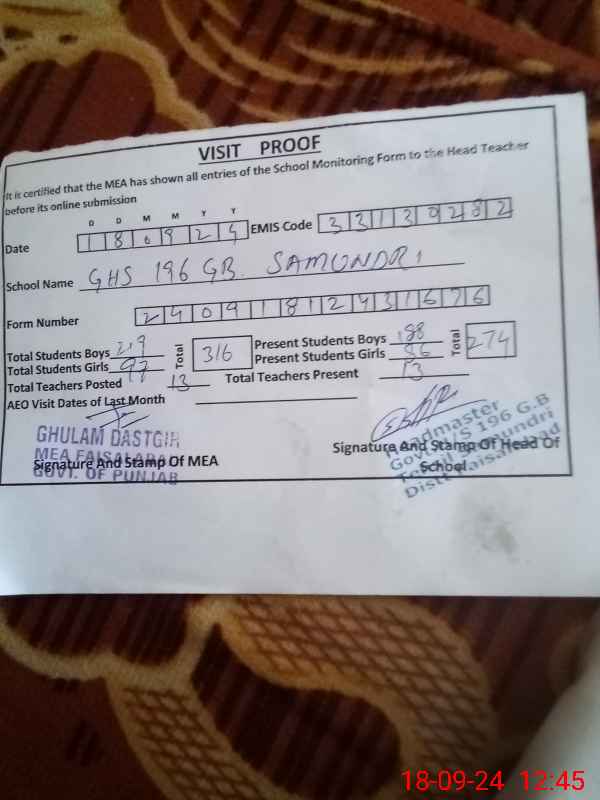 VISIT PROOF
It is certified that the MEA has shown all entries of the School Monitoring Form to the Head Teacher
before its online submission
D D M M Y Y
Date 1 8 0 9 2 4 EMIS Code 3 3 1 3 0 2 8 2
School Name GHS 196 GB. SAMUNDRI
Form Number 2 4 0 9 1 8 1 2 4 3 1 6 7 6
Total Students Boys 219 Total 316 Present Students Boys 188 Total 274
Total Students Girls 97 Present Students Girls 86
Total Teachers Posted 13 Total Teachers Present 13
AEO Visit Dates of Last Month
GHULAM DASTGIR
MEA FAISALABAD
Signature And Stamp Of MEA
GOVT. OF PUNJAB
Headmaster
Govt. HS 196 G.B
Signature And Stamp Of Head Of
School
Samundri
Distt. Faisalabad
18-09-24 12:45